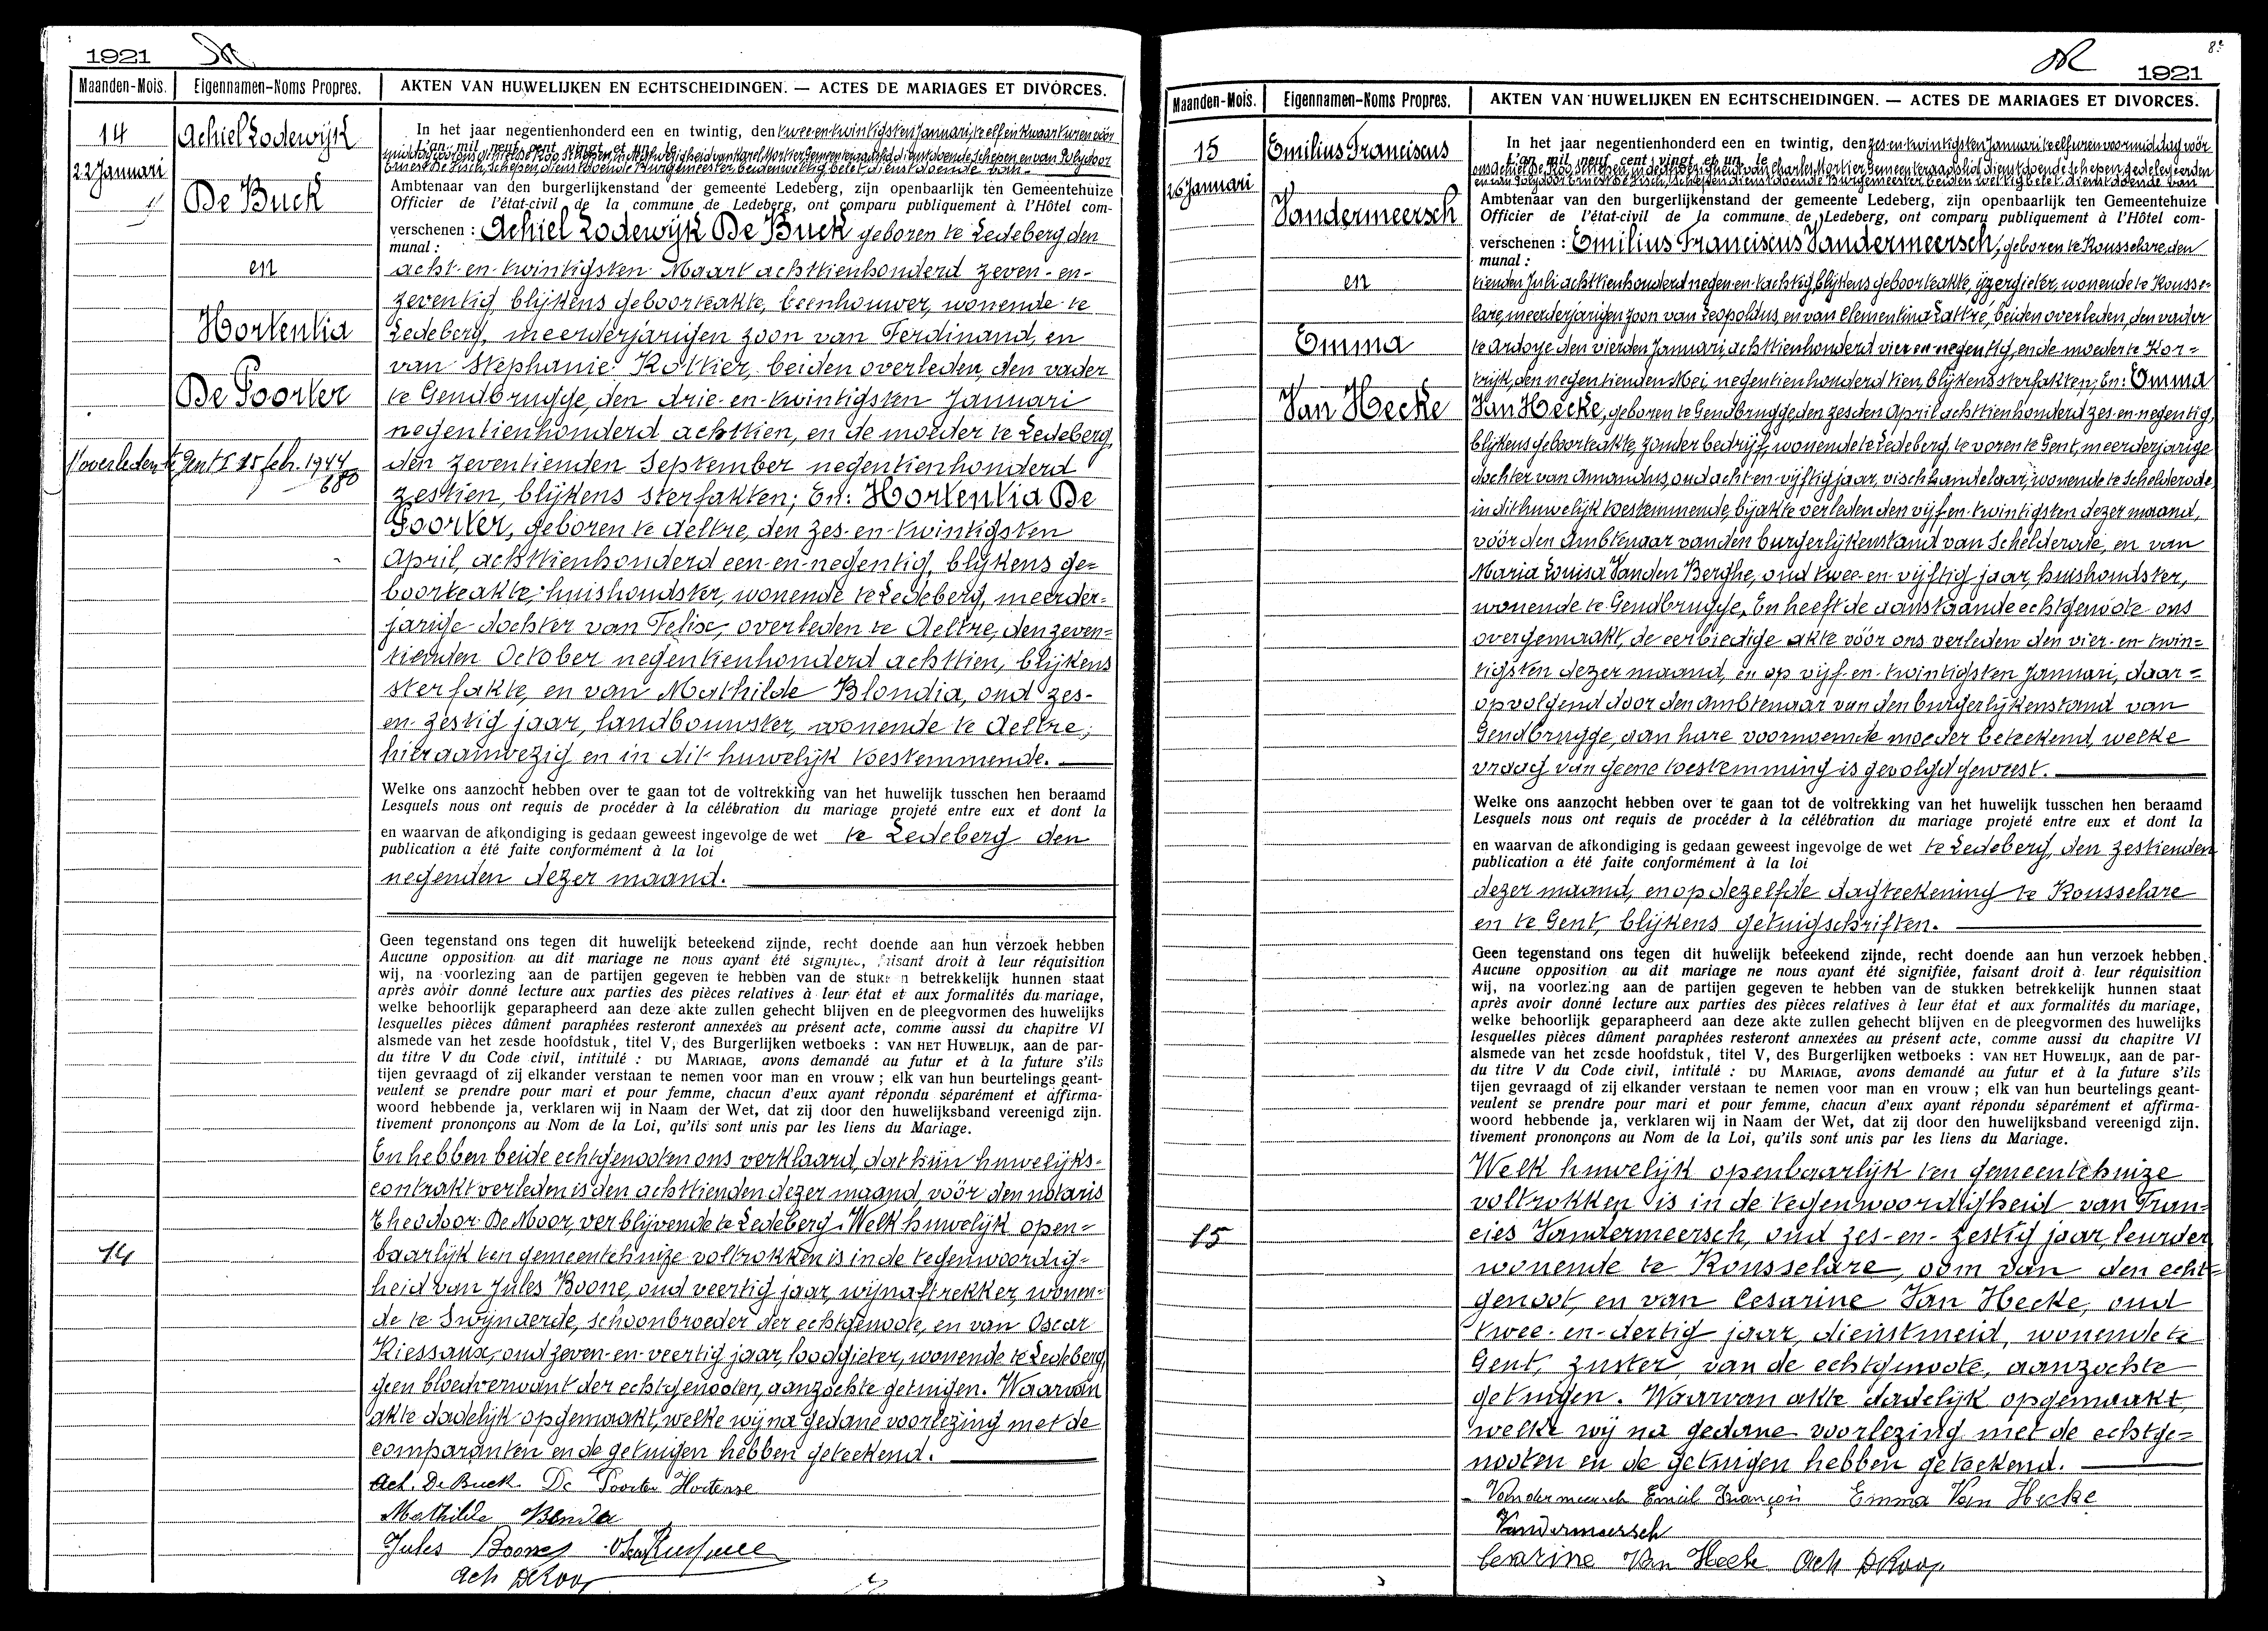 1921
Maanden-Mois. Eigennamen-Noms Propres. AKTEN VAN HUWELIJKEN EN ECHTSCHEIDINGEN. — ACTES DE MARIAGES ET DIVORCES.
14
22 Januari
Achiel Lodewijk
De Buck
en
Hortentia
De Poorter
1° overleden te Gent I 15 feb. 1944
680
14
In het jaar negentienhonderd een en twintig, den twee-en-twintigsten Januari, te elf en kwaart uren vóór
L'an mil neuf cent vingt et un le
Ambtenaar van den burgerlijkenstand der gemeente Ledeberg, zijn openbaarlijk ten Gemeentehuize
Officier de l'état-civil de la commune de Ledeberg, ont comparu publiquement à l'Hôtel com-
verschenen : Achiel Lodewijk De Buck geboren te Ledeberg den
munal :
acht-en-twintigsten Maart achttienhonderd zeven-en-
zeventig, blijkens geboorteakte, beenhouwer, wonende te
Ledeberg, meerderjarigen zoon van Ferdinand, en
van Stephanie Rottier, beiden overleden, den vader
te Gendbrugge, den drie-en-twintigsten Januari
negentienhonderd achttien, en de moeder te Ledeberg,
den zeventienden September negentienhonderd
zestien, blijkens sterfakten; En: Hortentia De
Poorter, geboren te Aeltre, den zes-en-twintigsten
April, achttienhonderd een-en-negentig, blijkens ge=
boorteakte, huishoudster, wonende te Ledeberg, meerder=
jarige dochter van Felix, overleden te Aeltre, den zeven=
tienden October negentienhonderd achttien, blijkens
sterfakte, en van Mathilde Blondia, oud zes-
en-zestig jaar, landbouwster, wonende te Aeltre,
hier aanwezig en in dit huwelijk toestemmende.
Welke ons aanzocht hebben over te gaan tot de voltrekking van het huwelijk tusschen hen beraamd
Lesquels nous ont requis de procéder à la célébration du mariage projeté entre eux et dont la
en waarvan de afkondiging is gedaan geweest ingevolge de wet te Ledeberg den
publication a été faite conformément à la loi
negenden dezer maand.
Geen tegenstand ons tegen dit huwelijk beteekend zijnde, recht doende aan hun verzoek hebben
Aucune opposition au dit mariage ne nous ayant été signifiée, faisant droit à leur réquisition
wij, na voorlezing aan de partijen gegeven te hebben van de stukken betrekkelijk hunnen staat
après avoir donné lecture aux parties des pièces relatives à leur état et aux formalités du mariage,
welke behoorlijk geparapheerd aan deze akte zullen gehecht blijven en de pleegvormen des huwelijks
lesquelles pièces dûment paraphées resteront annexées au présent acte, comme aussi du chapitre VI
alsmede van het zesde hoofdstuk, titel V, des Burgerlijken wetboeks : VAN HET HUWELIJK, aan de par-
du titre V du Code civil, intitulé : DU MARIAGE, avons demandé au futur et à la future s'ils
tijen gevraagd of zij elkander verstaan te nemen voor man en vrouw ; elk van hun beurtelings geant-
veulent se prendre pour mari et pour femme, chacun d'eux ayant répondu séparément et affirma-
woord hebbende ja, verklaren wij in Naam der Wet, dat zij door den huwelijksband vereenigd zijn.
tivement prononçons au Nom de la Loi, qu'ils sont unis par les liens du Mariage.
En hebben beide echtgenooten ons verklaard, dat hun huwelijks-
contrakt verleden is den achttienden dezer maand, vóór den notaris
Theodoor De Moor, verblijvende te Ledeberg. Welk huwelijk open=
baarlijk ten gemeentehuize voltrokken is in de tegenwoordig=
heid van Jules Boone, oud veertig jaar, wijnaftrekker, wonen=
de te Swijnaerde, schoonbroeder der echtgenoote, en van Oscar
Kiessaux, oud zeven-en-veertig jaar, loodgieter, wonende te Ledeberg,
geen bloedverwant der echtgenooten, aanzochte getuigen. Waarvan
akte dadelijk opgemaakt, welke wij na gedane voorlezing met de
comparanten en de getuigen hebben geteekend.
Ach. De Buck De Poorter Hortense
Mathilde
Jules Boone
Ach DeKoo
8e
1921
Maanden-Mois. Eigennamen-Noms Propres. AKTEN VAN HUWELIJKEN EN ECHTSCHEIDINGEN. — ACTES DE MARIAGES ET DIVORCES.
15
26 Januari
Emilius Franciscus
Vandermeersch
en
Emma
Van Hecke
15
In het jaar negentienhonderd een en twintig, den zes-en-twintigsten Januari te elf uren voormiddag vóór
L'an mil neuf cent vingt et un le
Ambtenaar van den burgerlijkenstand der gemeente Ledeberg, zijn openbaarlijk ten Gemeentehuize
Officier de l'état-civil de la commune de Ledeberg, ont comparu publiquement à l'Hôtel com-
verschenen : Emilius Franciscus Vandermeersch, geboren te Rousselare, den
munal :
tienden Juli achttienhonderd negen-en-tachtig, blijkens geboorteakte, ijzergieter, wonende te Rousse=
lare, meerderjarigen zoon van Leopoldus, en van Clementina Lattré, beiden overleden, den vader
te Ardoye den vierden Januari, achttienhonderd vier en negentig, en de moeder te Kor=
trijk, den negentienden Mei, negentienhonderd tien, blijkens sterfakten; En: Emma
Van Hecke, geboren te Gendbrugge, den zesden April achttienhonderd zes-en-negentig,
blijkens geboorteakte, zonder bedrijf, wonende te Ledeberg, te voren te Gent, meerderjarige
dochter van Amandus, oud acht-en-vijftig jaar, vischhandelaar, wonende te Schelderode,
in dit huwelijk toestemmende, bij akte verleden den vijf-en-twintigsten dezer maand,
vóór den Ambtenaar van den burgerlijkenstand van Schelderode, en van
Maria Louisa Vanden Berghe, oud twee-en-vijftig jaar, huishoudster,
wonende te Gendbrugge, En heeft de aanstaande echtgenoote ons
overgemaakt, de eerbiedige akte vóór ons verleden den vier-en-twin=
tigsten dezer maand, en op vijf-en-twintigsten Januari, daar=
opvolgend door den ambtenaar van den burgerlijkenstand van
Gendbrugge, aan hare voornoemde moeder beteekend, welke
vraag van geene toestemming is gevolgd geweest.
Welke ons aanzocht hebben over te gaan tot de voltrekking van het huwelijk tusschen hen beraamd
Lesquels nous ont requis de procéder à la célébration du mariage projeté entre eux et dont la
en waarvan de afkondiging is gedaan geweest ingevolge de wet te Ledeberg, den zestienden
publication a été faite conformément à la loi
dezer maand, en op dezelfde dagteekening te Rousselare
en te Gent, blijkens getuigschriften.
Geen tegenstand ons tegen dit huwelijk beteekend zijnde, recht doende aan hun verzoek hebben
Aucune opposition au dit mariage ne nous ayant été signifiée, faisant droit à leur réquisition
wij, na voorlezing aan de partijen gegeven te hebben van de stukken betrekkelijk hunnen staat
après avoir donné lecture aux parties des pièces relatives à leur état et aux formalités du mariage,
welke behoorlijk geparapheerd aan deze akte zullen gehecht blijven en de pleegvormen des huwelijks
lesquelles pièces dûment paraphées resteront annexées au présent acte, comme aussi du chapitre VI
alsmede van het zesde hoofdstuk, titel V, des Burgerlijken wetboeks : VAN HET HUWELIJK, aan de par-
du titre V du Code civil, intitulé : DU MARIAGE, avons demandé au futur et à la future s'ils
tijen gevraagd of zij elkander verstaan te nemen voor man en vrouw ; elk van hun beurtelings geant-
veulent se prendre pour mari et pour femme, chacun d'eux ayant répondu séparément et affirma-
woord hebbende ja, verklaren wij in Naam der Wet, dat zij door den huwelijksband vereenigd zijn.
tivement prononçons au Nom de la Loi, qu'ils sont unis par les liens du Mariage.
Welk huwelijk openbaarlijk ten gemeentehuize
voltrokken is in de tegenwoordigheid van Fran=
cies Vandermeersch, oud zes-en-zestig jaar, leurder,
wonende te Rousselare, oom van den echt=
genoot, en van Cesarine Van Hecke, oud
twee-en-dertig jaar, dienstmeid, wonende te
Gent, zuster, van de echtgenoote, aanzochte
getuigen. Waarvan akte dadelijk opgemaakt,
welke wij na gedane voorlezing met de echtge=
nooten en de getuigen hebben geteekend.
Vandermeersch Emiel François Emma Van Hecke
Vandermeersch
Cesarine Van Hecke Ach DeKoo